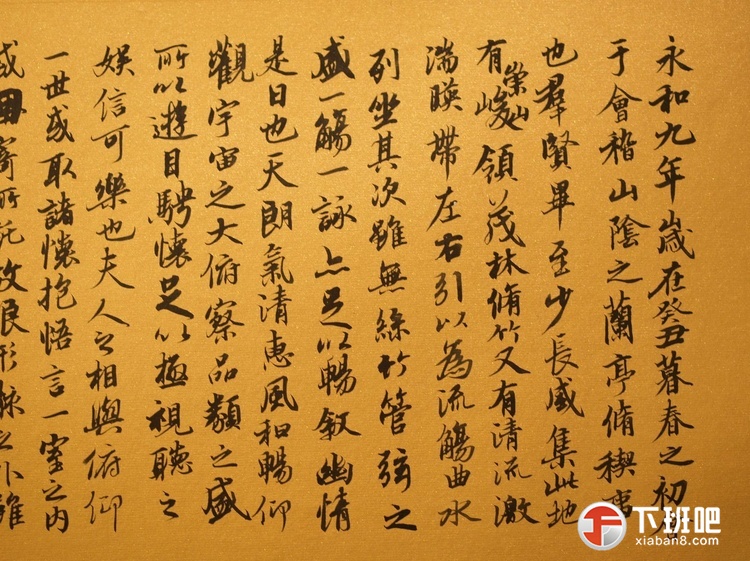 永和九年歲在癸丑暮春之初會
于會稽山陰之蘭亭脩稧事
也羣賢畢至少長咸集此地
有崇山峻領茂林脩竹又有清流激
湍暎帶左右引以為流觴曲水
列坐其次雖無絲竹管弦之
盛一觴一詠亦足以暢敘幽情
是日也天朗氣清惠風和暢仰
觀宇宙之大俯察品類之盛
所以遊目騁懷足以極視聽之
娛信可樂也夫人之相與俯仰
一世或取諸懷抱悟言一室之內
或因寄所託放浪形骸之外雖
下班吧
xiaban8.com